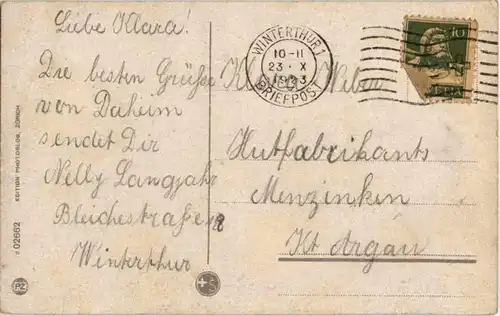 Liebe Klara!
Die besten Grüsse
von Daheim
sendet Dir
Nelly Langjahr
Bleichestraße 18
Winterthur
WINTERTHUR 1
10-11
23. X
1923
BRIEFPOST
10
Kl. Weber
Hutfabrikants
Menzinken
Kt Argau
EDITION PHOTOGLOB, ZÜRICH
02662
PZ
S